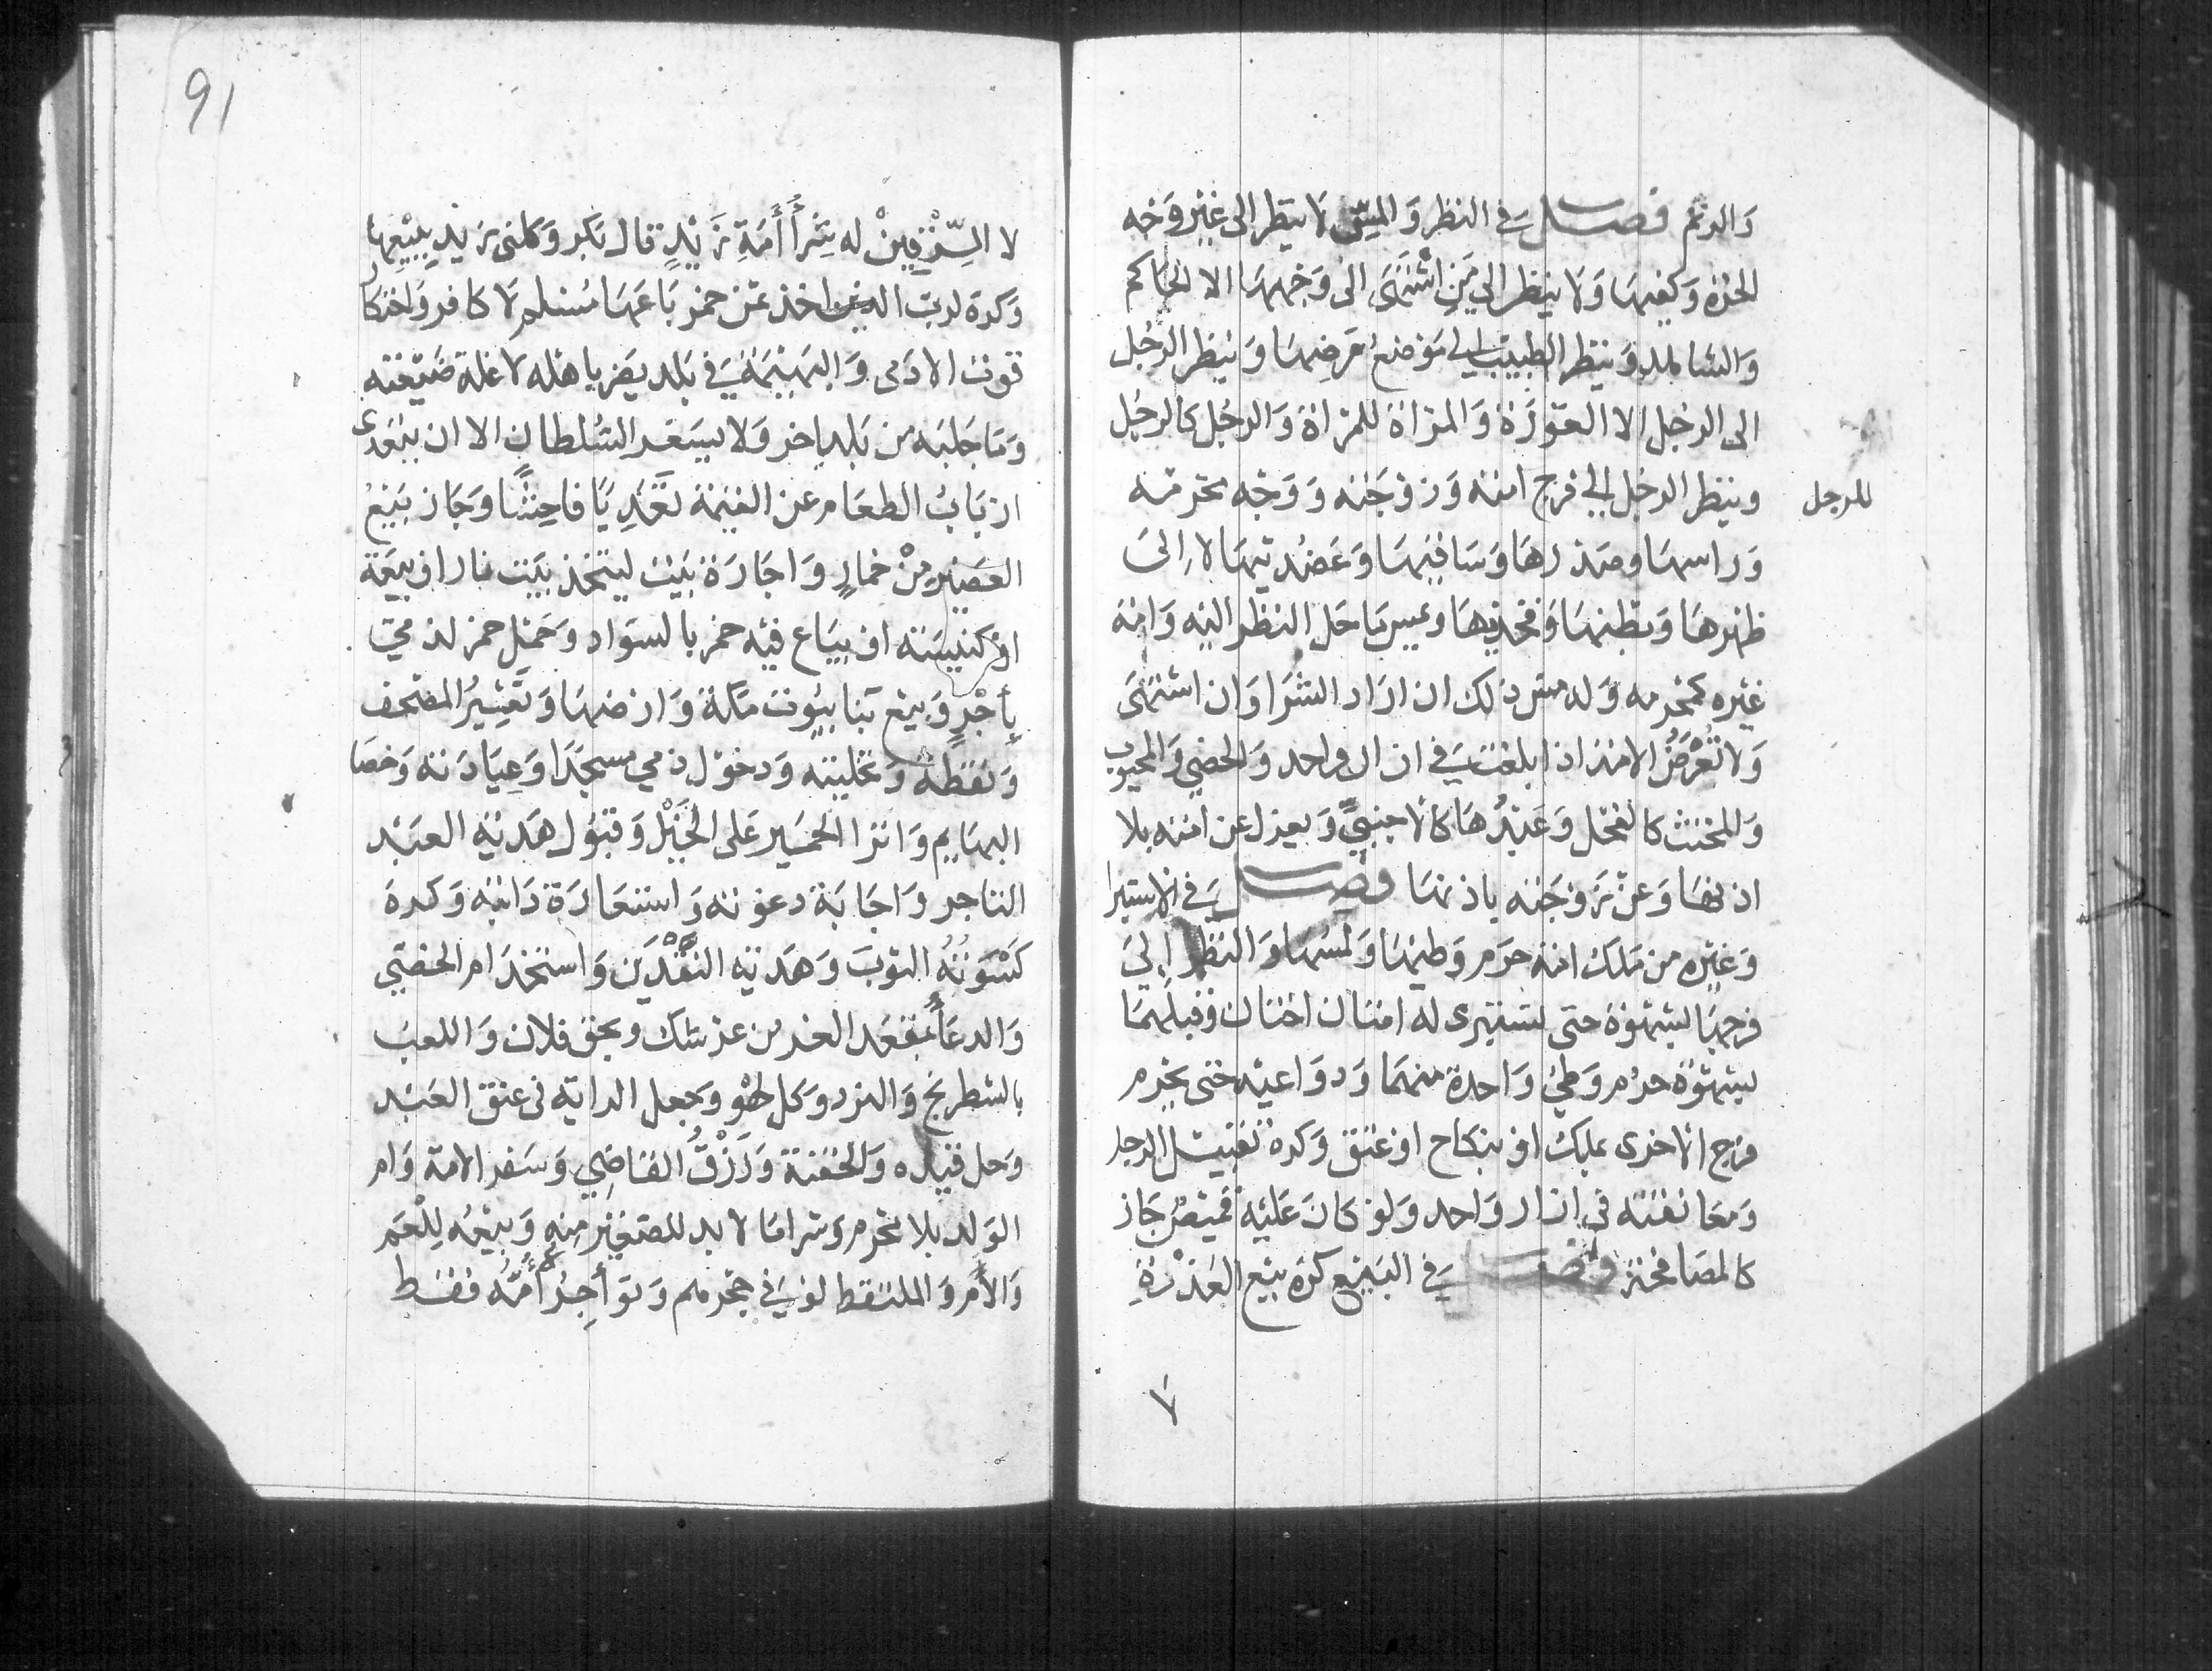 وَالرتم فصل في النظر وَالمسّ لا ينظر الى غير وَجه
الحرّة وَكفيها وَلا ينظر الى مَنِ اشْتَهَى الى وَجهها الا الحاكم
وَالشاهد وَينظر الطبيب الى مَوضعِ مَرضِها وَينظر الرجُل
الى الرجُل الا العَورَة وَالمرْأة للمرْأة وَالرجُل كالرجُل
للرجل
وينظر الرجُل الى فرج امته وَزوجَته وَوَجْه محرمه
وَراسها وصَدرهَا وَسَاقيهَا وَعَضُديهَا لا اِلىَ
ظهرهَا وَبطنهَا وَفخذيهَا ويمس مَا حَل النظر اليه وَامة
غيره كمحرمه وَله مس ذلك ان ارَاد الشرَا وَان اشتهَى
وَلا تُعْرَضُ الامة اذا بلغت في ازار واحد وَالخصي وَالمجبوب
وَالمخنث كالفحل وَعَبْدُهَا كالاجنبيّ وَيعزل عن امته بلا
اذنهَا وَعنْ زَوجَته باذنهَا فصل في الاستبرا
وَغيره من مَلكَ امة حرَم وَطيهَا وَلمسهَا وَالنظر اِلىَ
فرجهَا بشهوَة حتى تستبرى له امتان اختان فقبلهمَا
بشهوَة حرُم وَطئ وَاحدة منهمَا وَدوَاعيه حتى يحرم
فرج الاخرى بملك او بنكاح او عتق وَكره تقبيل الرجل
وَمعَانقته في ازار وَاحد وَلو كانَ عَليْه قميصٌ جَاز
كالمصَافحة فصل في البَيع كره بَيع العَذرَةِ
٧
91
لا السِّرْقِينْ له شِرَأُ أَمَةِ زَيْدٍ قال بَكر وَكلنى زَيد ببيْعِها
وَكره لرب الدين اخذ ثمن خمر بَاعَهَا مُسْلم لا كافر وَاحتكار
قوت الادَمى وَالبَهيْمَة في بَلد يَضر باهله لا غلة ضَيْعَته
وَمَا جَلبَه من بَلد اخر وَلا يسَعّر السُلطان الا ان يتعَدى
ارْبَابُ الطعَام عن القيمَة تَعَدِّيًا فاحِشًا وَجَاز بَيْعُ
العَصير مِنْ خمارٍ وَاجَارَة بَيْت ليتخذ بيَت نار او بيعَة
اوْ كنيسَته او يبَاع فيْه خمر بالسوَاد وَحَمْل خمر لذمي
بِأجْرٍ وَبيْع بَنا بيُوت مَكّة وَارْضهَا وَتعْشِيْرُ المصْحَف
وَنقطهُ وَتحليته وَدخوْل ذمي مسجدًا وَعِيَادَته وَخصَا
البهَايم وَانزا الحَمير عَلى الخَيْل وَقبوُل هَدية العَبْد
التاجر وَاجَابَة دعوَته وَاستعَارَة دَابته وَكره
كَسْوَتُهُ الثوبَ وَهَديَة النَّقْدَين وَاستخدَام الخصَي
وَالدعَأُ بمَقعَد العز من عرشك وبحَق فلان وَاللعبُ
بالشطرنج وَالنرد وَكل لهْو وَجعل الراية في عنق العَبْد
وَحل قيْده وَالحقنة وَرَزْقُ القَاضِي وَسَفر الامة وَام
الوَلد بلا محْرم وَشرا مَا لا بد للصَغيْر مِنه وَبيْعُه لِلْعَم
وَالأُمْ وَالملتَقط لو في حجْرهم وَتوَأجِرُ أمُّهُ فقط